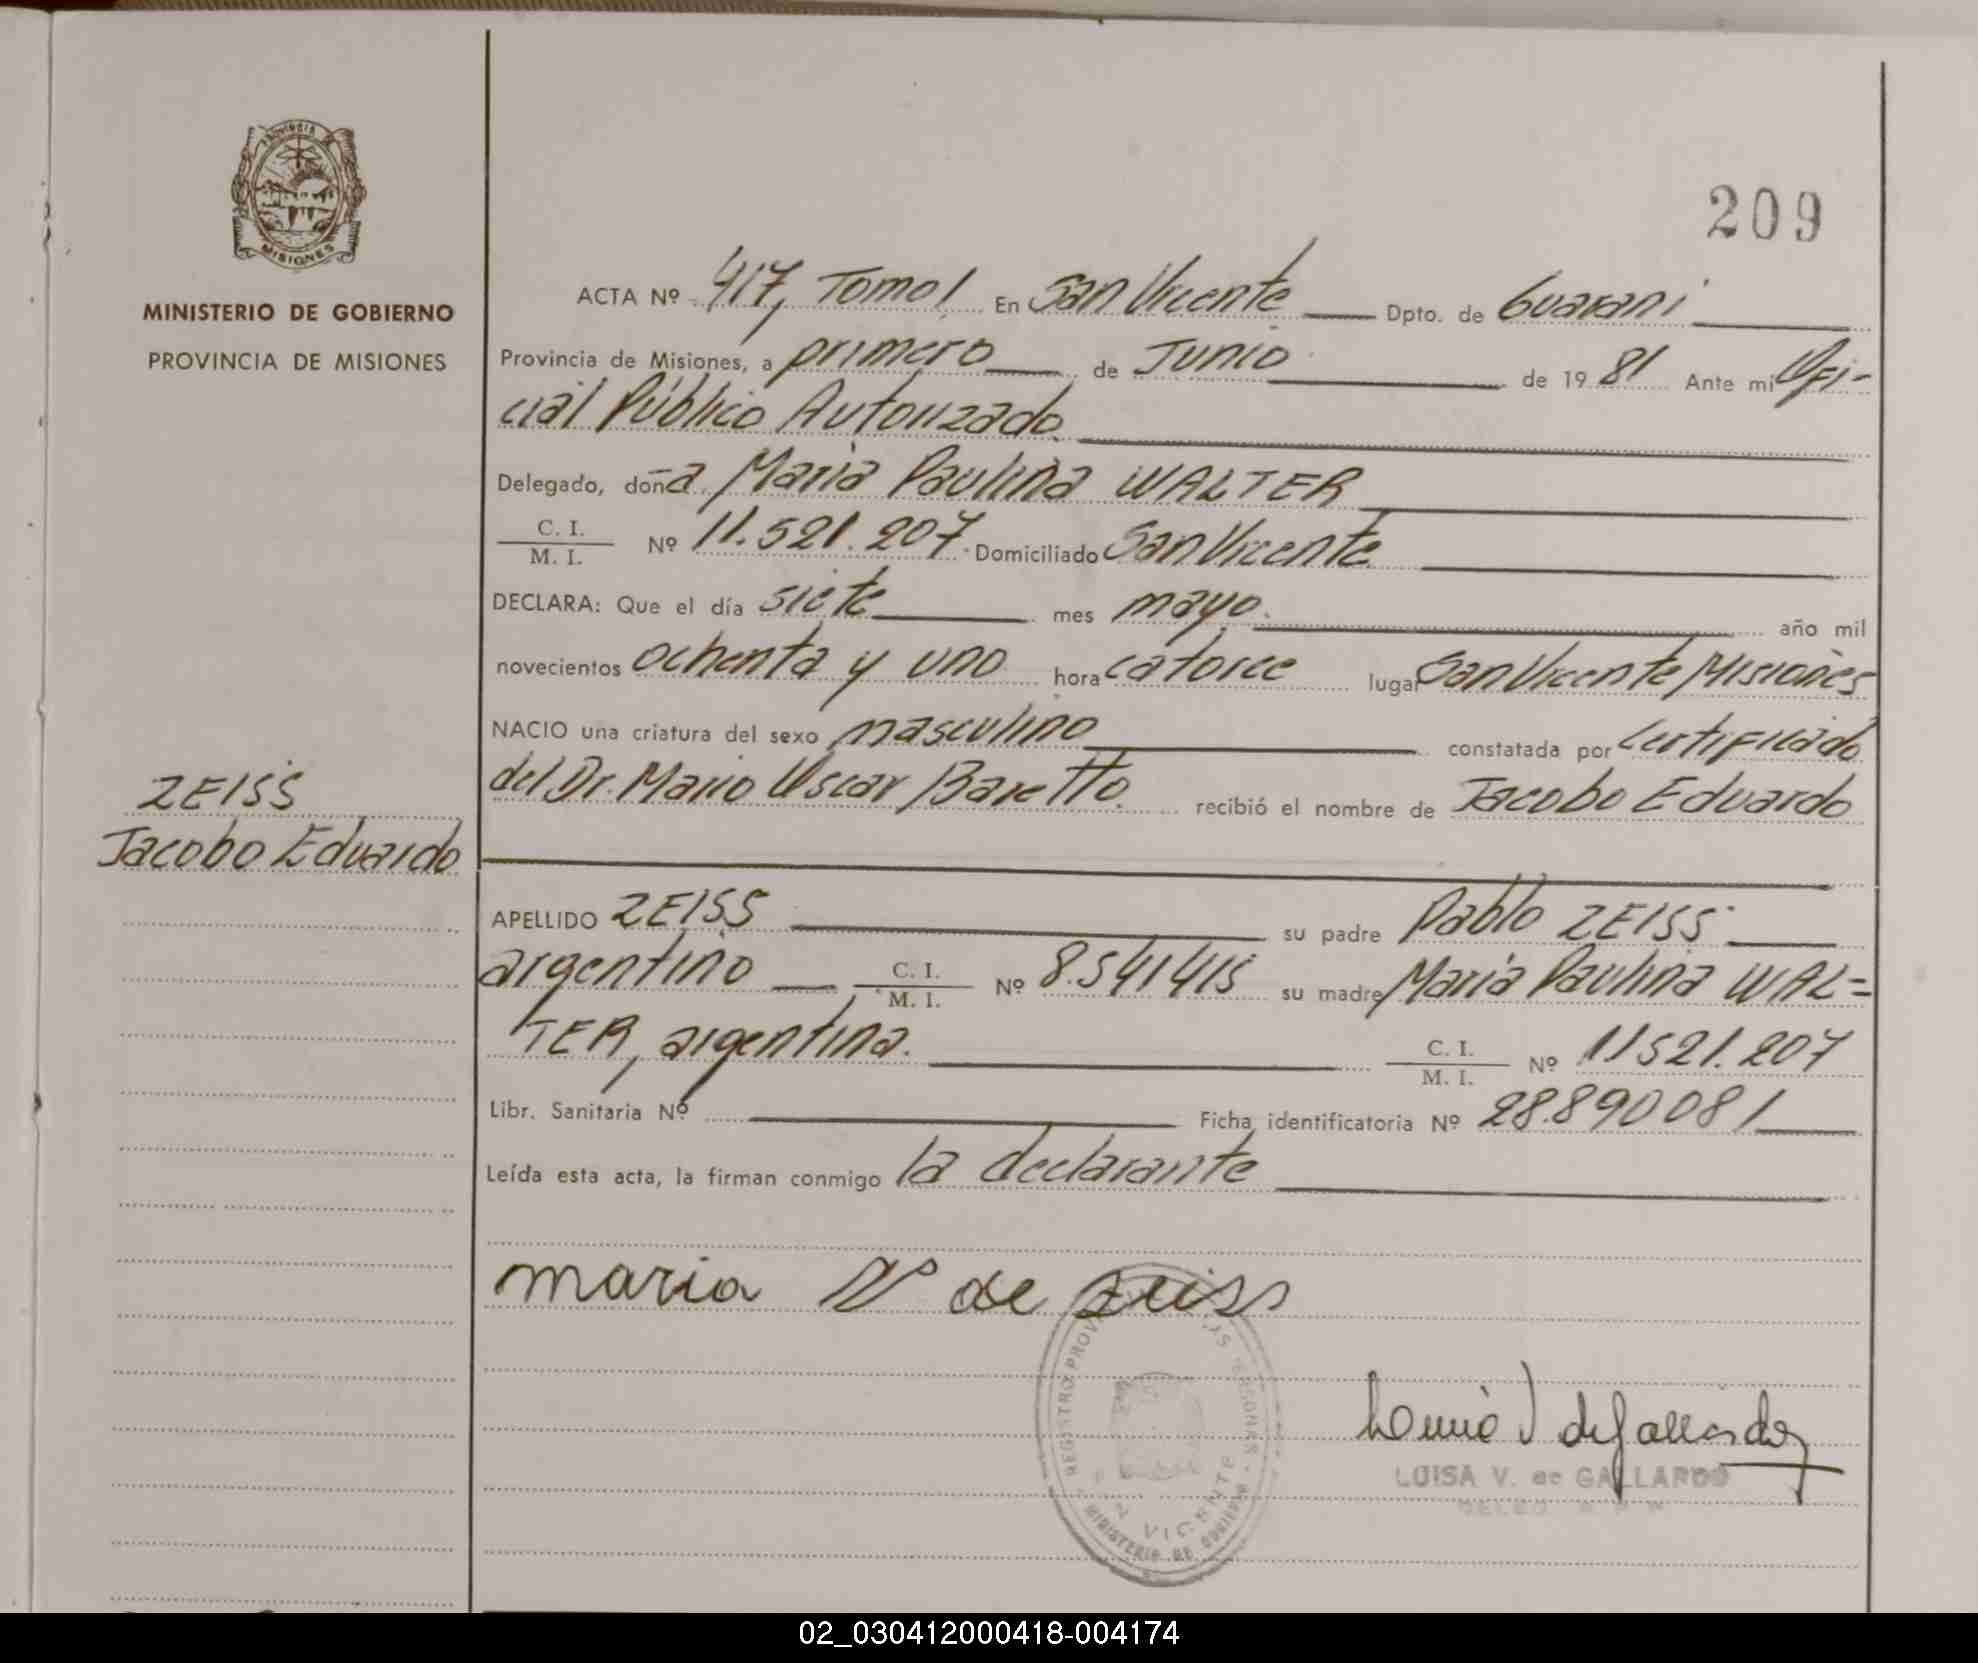 PROVINCIA DE
MISIONES
MINISTERIO DE GOBIERNO
PROVINCIA DE MISIONES
209
ACTA Nº 417, Tomo I En San Vicente Dpto. de Guarani
Provincia de Misiones, a primero de Junio de 19 81 Ante mi Ofi-
cial Público Autorizado
Delegado, doña María Paulina WALTER
C. I.
M. I. Nº 11.521.207 Domiciliado San Vicente
DECLARA: Que el día siete mes mayo año mil
novecientos ochenta y uno hora catorce lugar San Vicente Misiones
NACIO una criatura del sexo masculino constatada por Certificado
del Dr. Mario Oscar Baretto recibió el nombre de Jacobo Eduardo
ZEISS
Jacobo Eduardo
APELLIDO ZEISS su padre Pablo ZEISS
argentino C. I.
M. I. Nº 8.541415 su madre María Paulina WAL=
TER, argentina. C. I.
M. I. Nº 11521.207
Libr. Sanitaria Nº Ficha identificatoria Nº 28.890081
Leída esta acta, la firman conmigo la declarante
maria de Zeiss
REGISTRO PROV
VICENTE
MINISTERIO DE GOBIERNO
de Gallardo
LUISA V. de GALLARDO
02_030412000418-004174